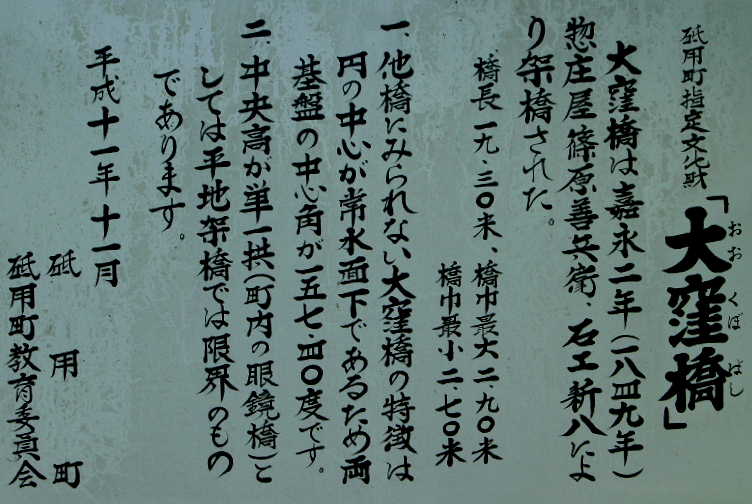 砥用町指定文化財
「大窪橋」
おおくぼばし
大窪橋は嘉永二年(一八四九年)
惣庄屋篠原善兵衛、石工新八によ
り架橋された。
橋長一九、三〇米、橋巾最大二、九〇米
橋巾最小二、七〇米
一、他橋にみられない大窪橋の特徴は
円の中心が常水面下であるため両
基盤の中心角が一五七、四〇度です。
二、中央高が単一拱(町内の眼鏡橋)と
しては平地架橋では限界のもの
であります。
平成十一年十一月
砥用町
砥用町教育委員会